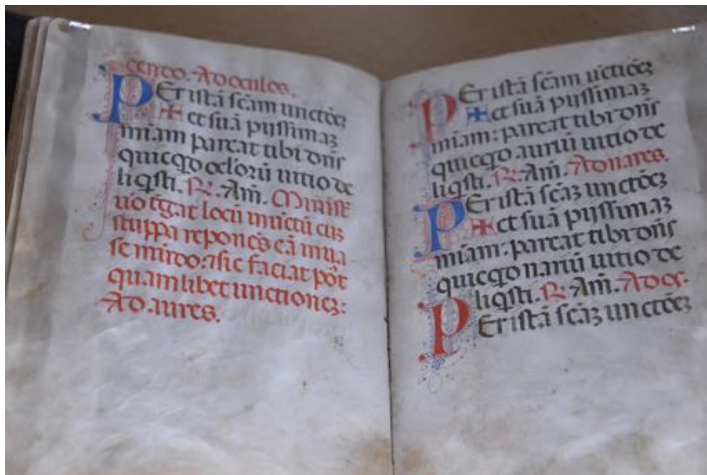 cerdo. Ad oculos.
PEr istā scām unctōeȝ
✠ et suā pijssimaȝ
mīam parcat tibi dn̄s
quicqd oclorū uitio de
liq̄sti. R. Am̄. Minist
uo t̄gat locū inunctū cuȝ
stuppa reponēs eā in ua
se mūdo: ⁊ sic faciat pōt
quamlibet unctioneȝ:
Ad aures.
PEr istā scām uctiōeȝ
✠ et suā pijssimaȝ
mīam: parcat tibi dn̄s
quicqd auriū uitio de
liq̄sti. R. Am̄. Ad nares.
PEr istā scāȝ unctōeȝ
✠ et suā pijssimaȝ
mīam: parcat tibi dn̄s
quicqd nariū uitio de
liq̄sti. R. Am̄. Ad os.
PEr istā scāȝ unctōeȝ